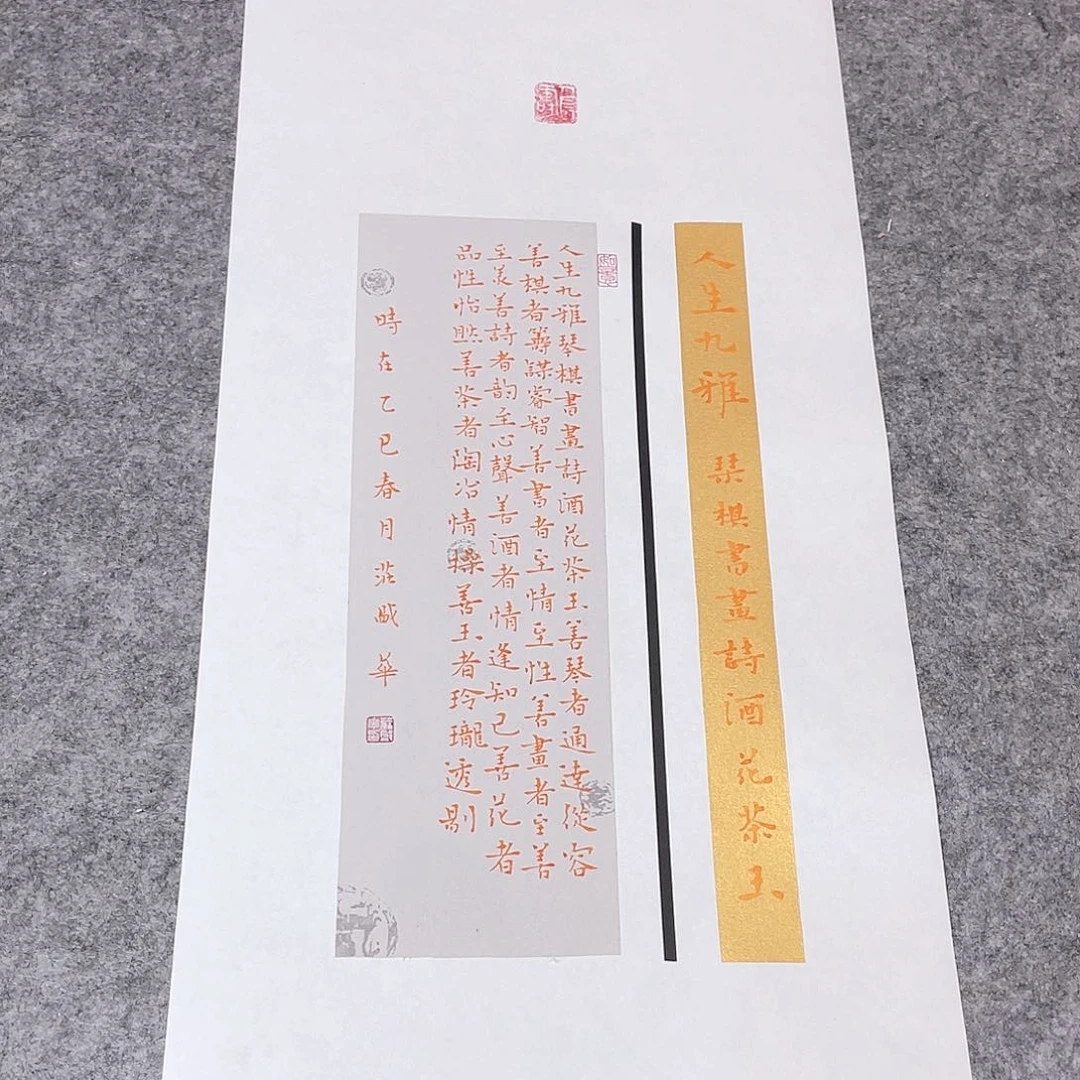 人生九雅 琹棋書畫詩酒花茶玉
人生九雅琴棋書畫詩酒花茶玉善琴者通達從容
善棋者籌謀睿智善書者至情至性善畫者至善
至美善詩者韵至心聲善酒者情逢知己善花者
品性怡然善茶者陶冶情操善玉者玲瓏透剔
時在乙巳春月莊晠華
如意